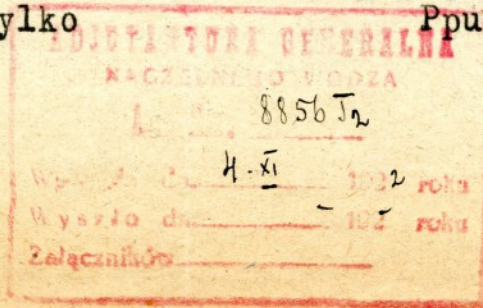 ylko Ppu
ADJUTANTURA GENERALNA
NACZELNEGO WODZA
L. 8856 T2
Wpłynęło dn. 4.XI 1922 roku
Wyszło dn. - 192- roku
Załączników